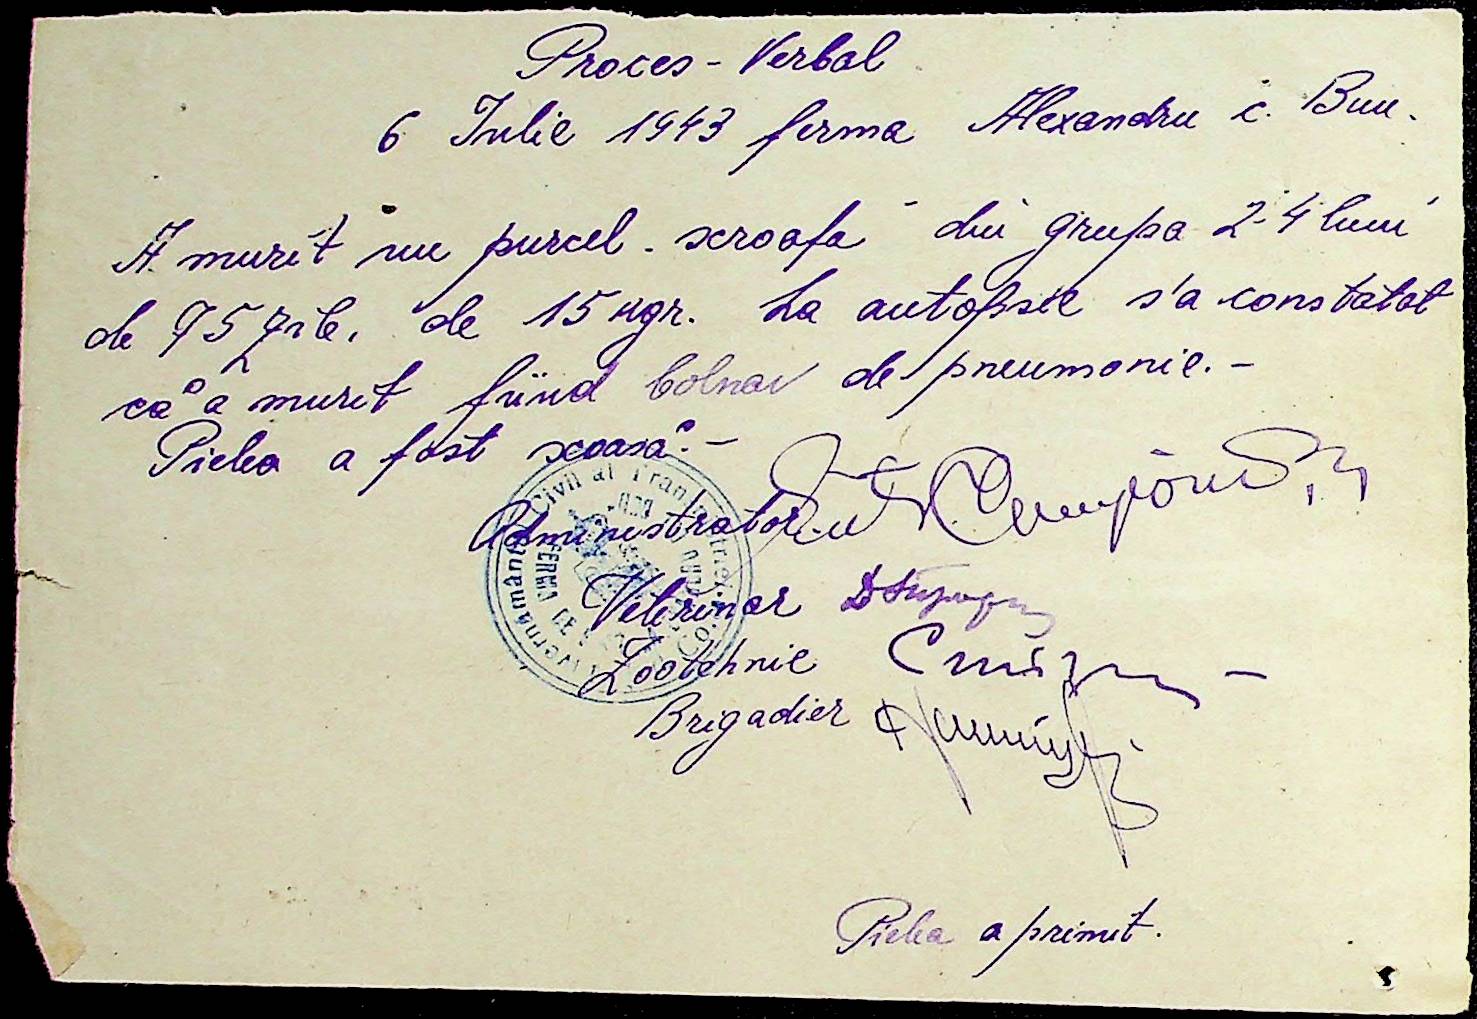 Proces - Verbal
6 Iulie 1943 ferma Alexandru c. Bun.
A murit un purcel - scroafă din grupa 2-4 luni
de 75 zile, de 15 kgr. La autopsie s'a constatat
că a murit fiind bolnav de pneumonie. -
Pielea a fost scoasă. -
Administrator
Veterinar
Zootehnic
Brigadier
Guvernământul Civil al Transnistriei
FERMA DE
Pielea a primit.